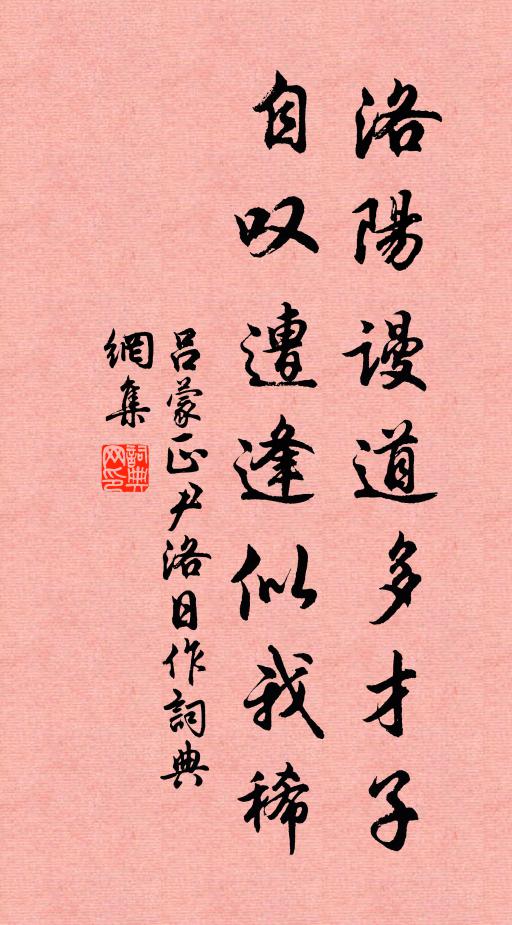 洛陽謾道多才子
自叹遭逢似我稀
吕蒙正尹洛日作詞典
網集
詞典网印